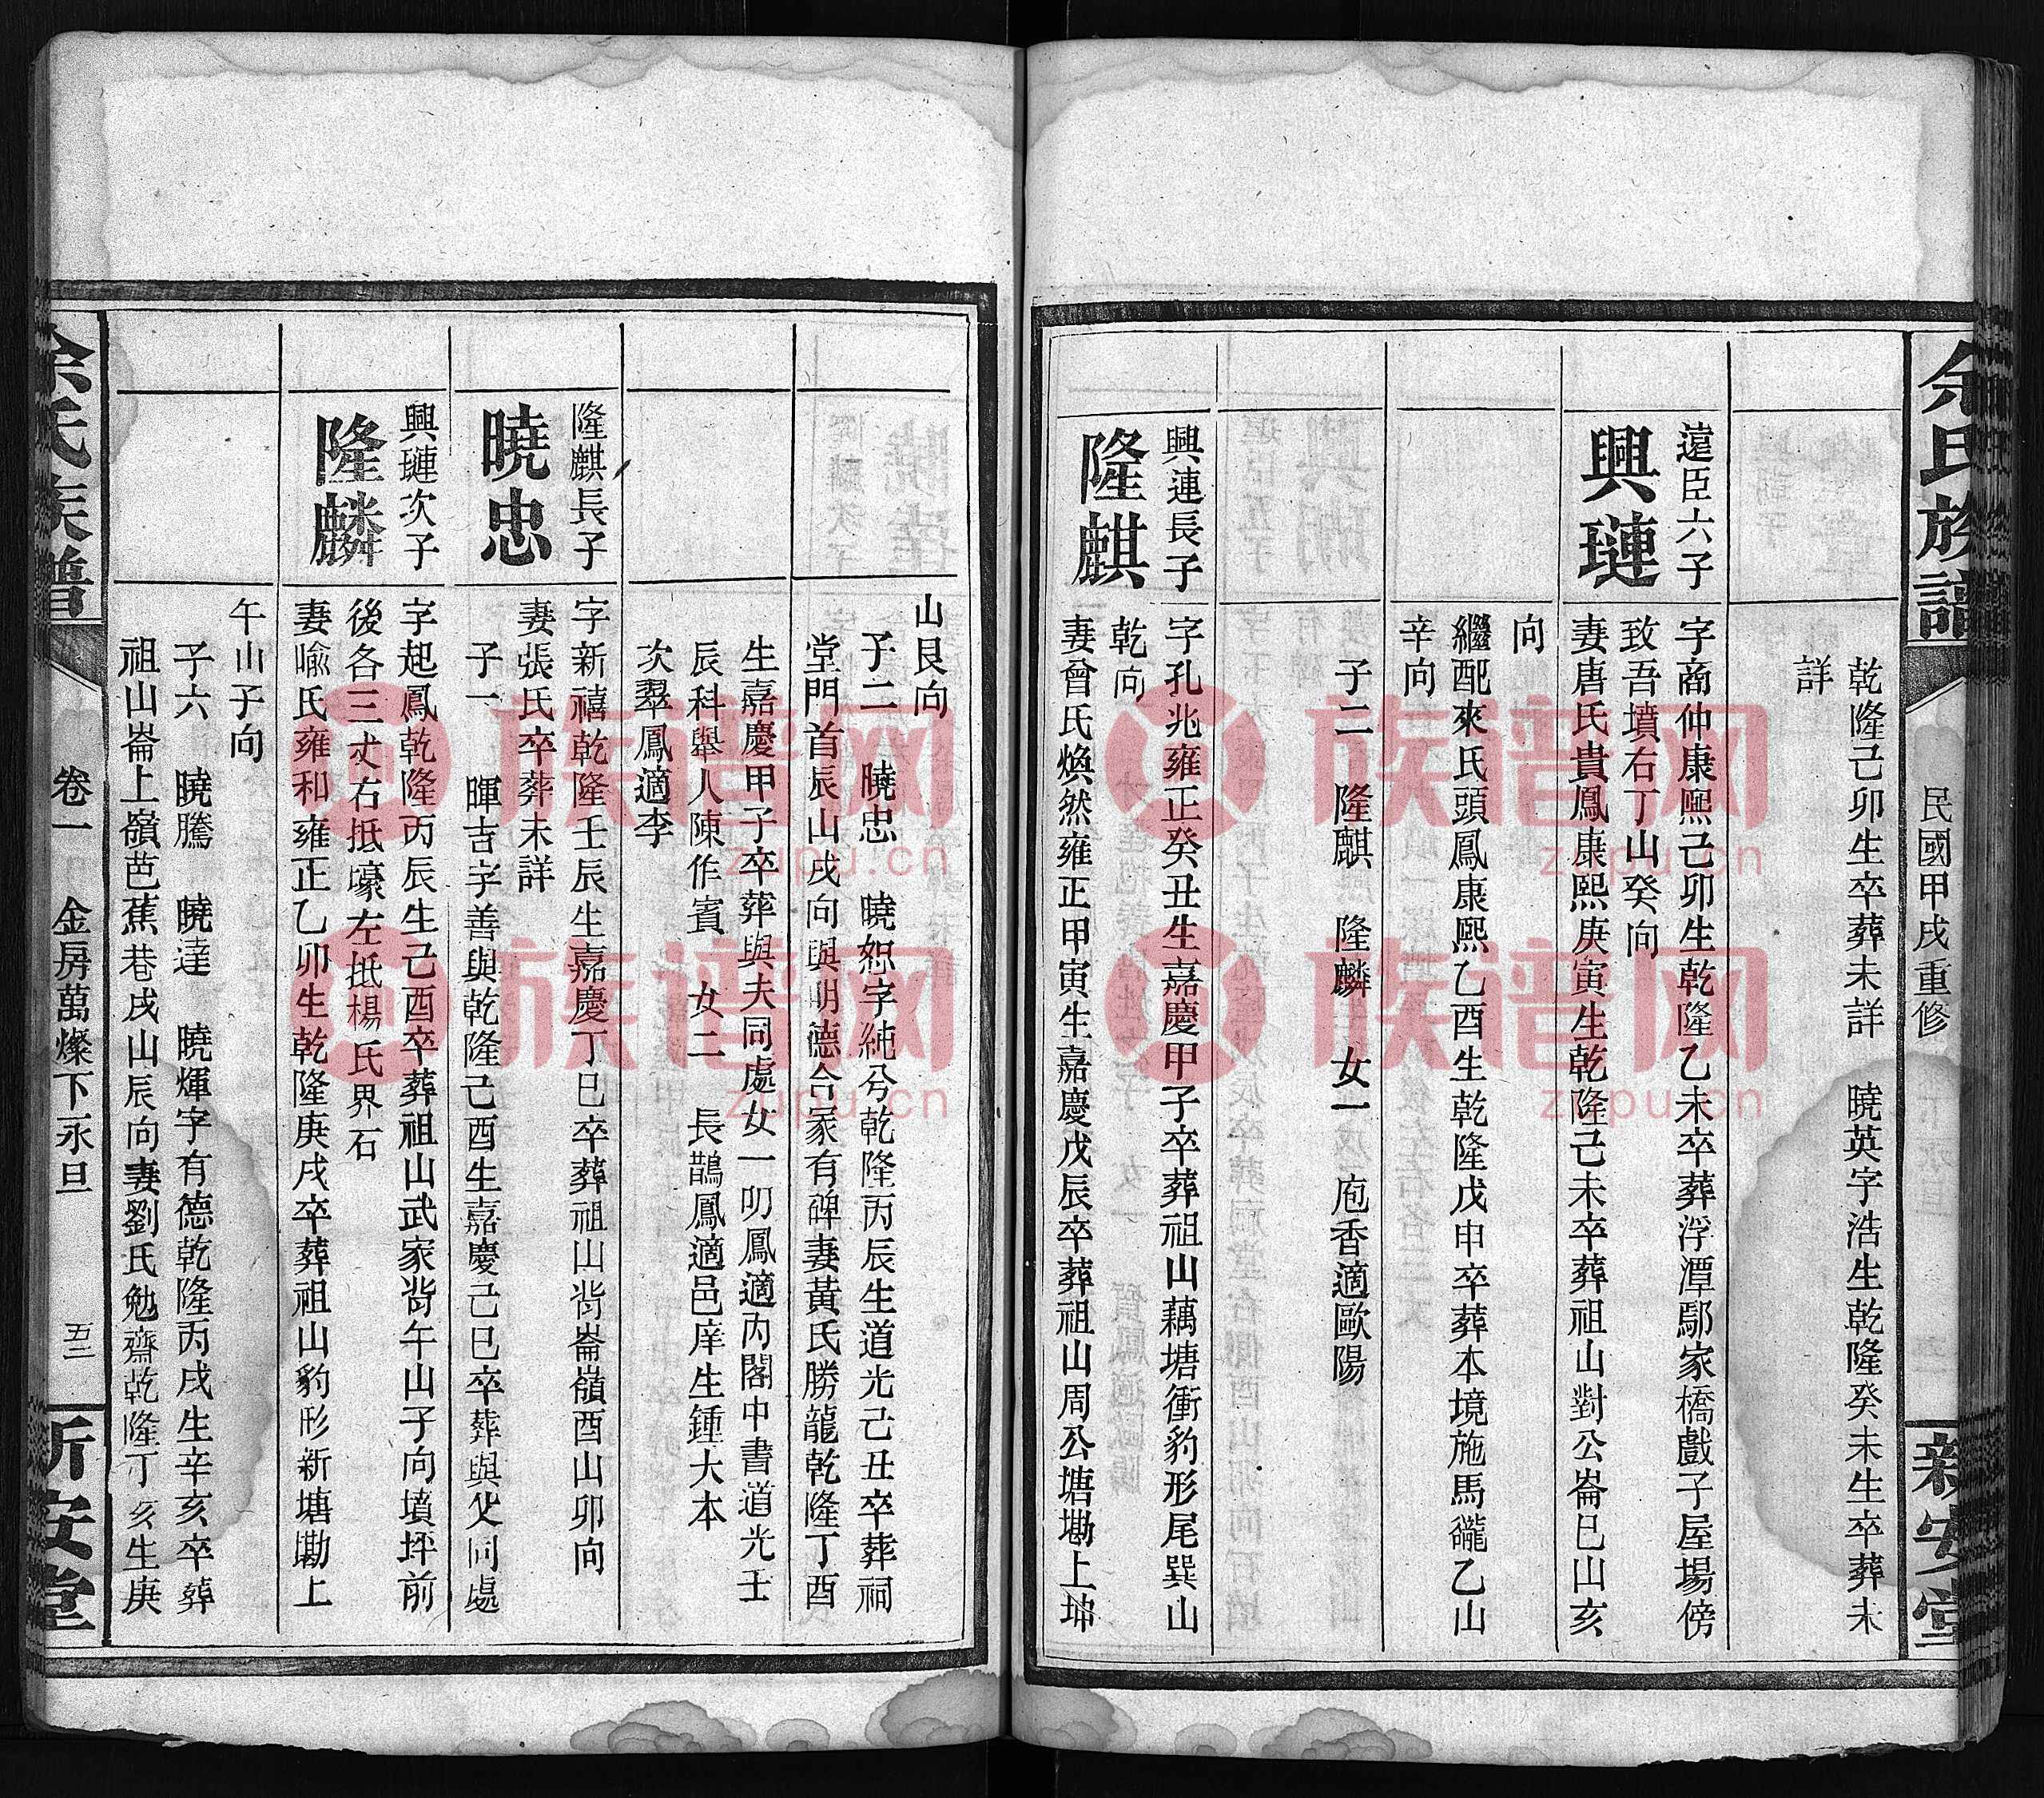 余氏族譜
民國甲戌重修
新安堂
乾隆己卯生卒葬未詳　曉英字浩生乾隆癸未生卒葬未
詳
遠臣六子
興璉
字商仲康熙己卯生乾隆乙未卒葬浮潭鄢家橋戲子屋場傍
致吾墳右丁山癸向
妻唐氏貴鳳康熙庚寅生乾隆己未卒葬祖山對公崙巳山亥
向
繼配來氏頭鳳康熙乙酉生乾隆戊申卒葬本境施馬礲乙山
辛向
子二　隆麒　隆麟　女一　庖香適歐陽
興連長子
隆麒
字孔兆雍正癸丑生嘉慶甲子卒葬祖山藕塘衝豹形尾巽山
乾向
妻曾氏煥然雍正甲寅生嘉慶戊辰卒葬祖山周公塘塝上坤
山艮向
子二　曉忠　曉恕字純兮乾隆丙辰生道光己丑卒葬祠
堂門首辰山戌向與明德合冢有碑妻黃氏勝龍乾隆丁酉
生嘉慶甲子卒葬與夫同處女一叨鳳適內閣中書道光壬
辰科舉人陳作賓　女二　長鵲鳳適邑庠生鍾大本
次翠鳳適李
隆麒長子
曉忠
字新禧乾隆壬辰生嘉慶丁巳卒葬祖山背崙嶺酉山卯向
妻張氏卒葬未詳
子一　暉吉字善與乾隆己酉生嘉慶己巳卒葬與父同處
興璉次子
隆麟
字起鳳乾隆丙辰生己酉卒葬祖山武家背午山子向墳坪前
後各三丈右抵壕左抵楊氏界石
妻喻氏雍和雍正乙卯生乾隆庚戌卒葬祖山豹形新塘塝上
午山子向
子六　曉騰　曉達　曉煇字有德乾隆丙戌生辛亥卒葬
祖山崙上嶺芭蕉巷戌山辰向妻劉氏勉齋乾隆丁亥生庚
余氏族譜
卷一　金房萬燦下永旦
五二
新安堂